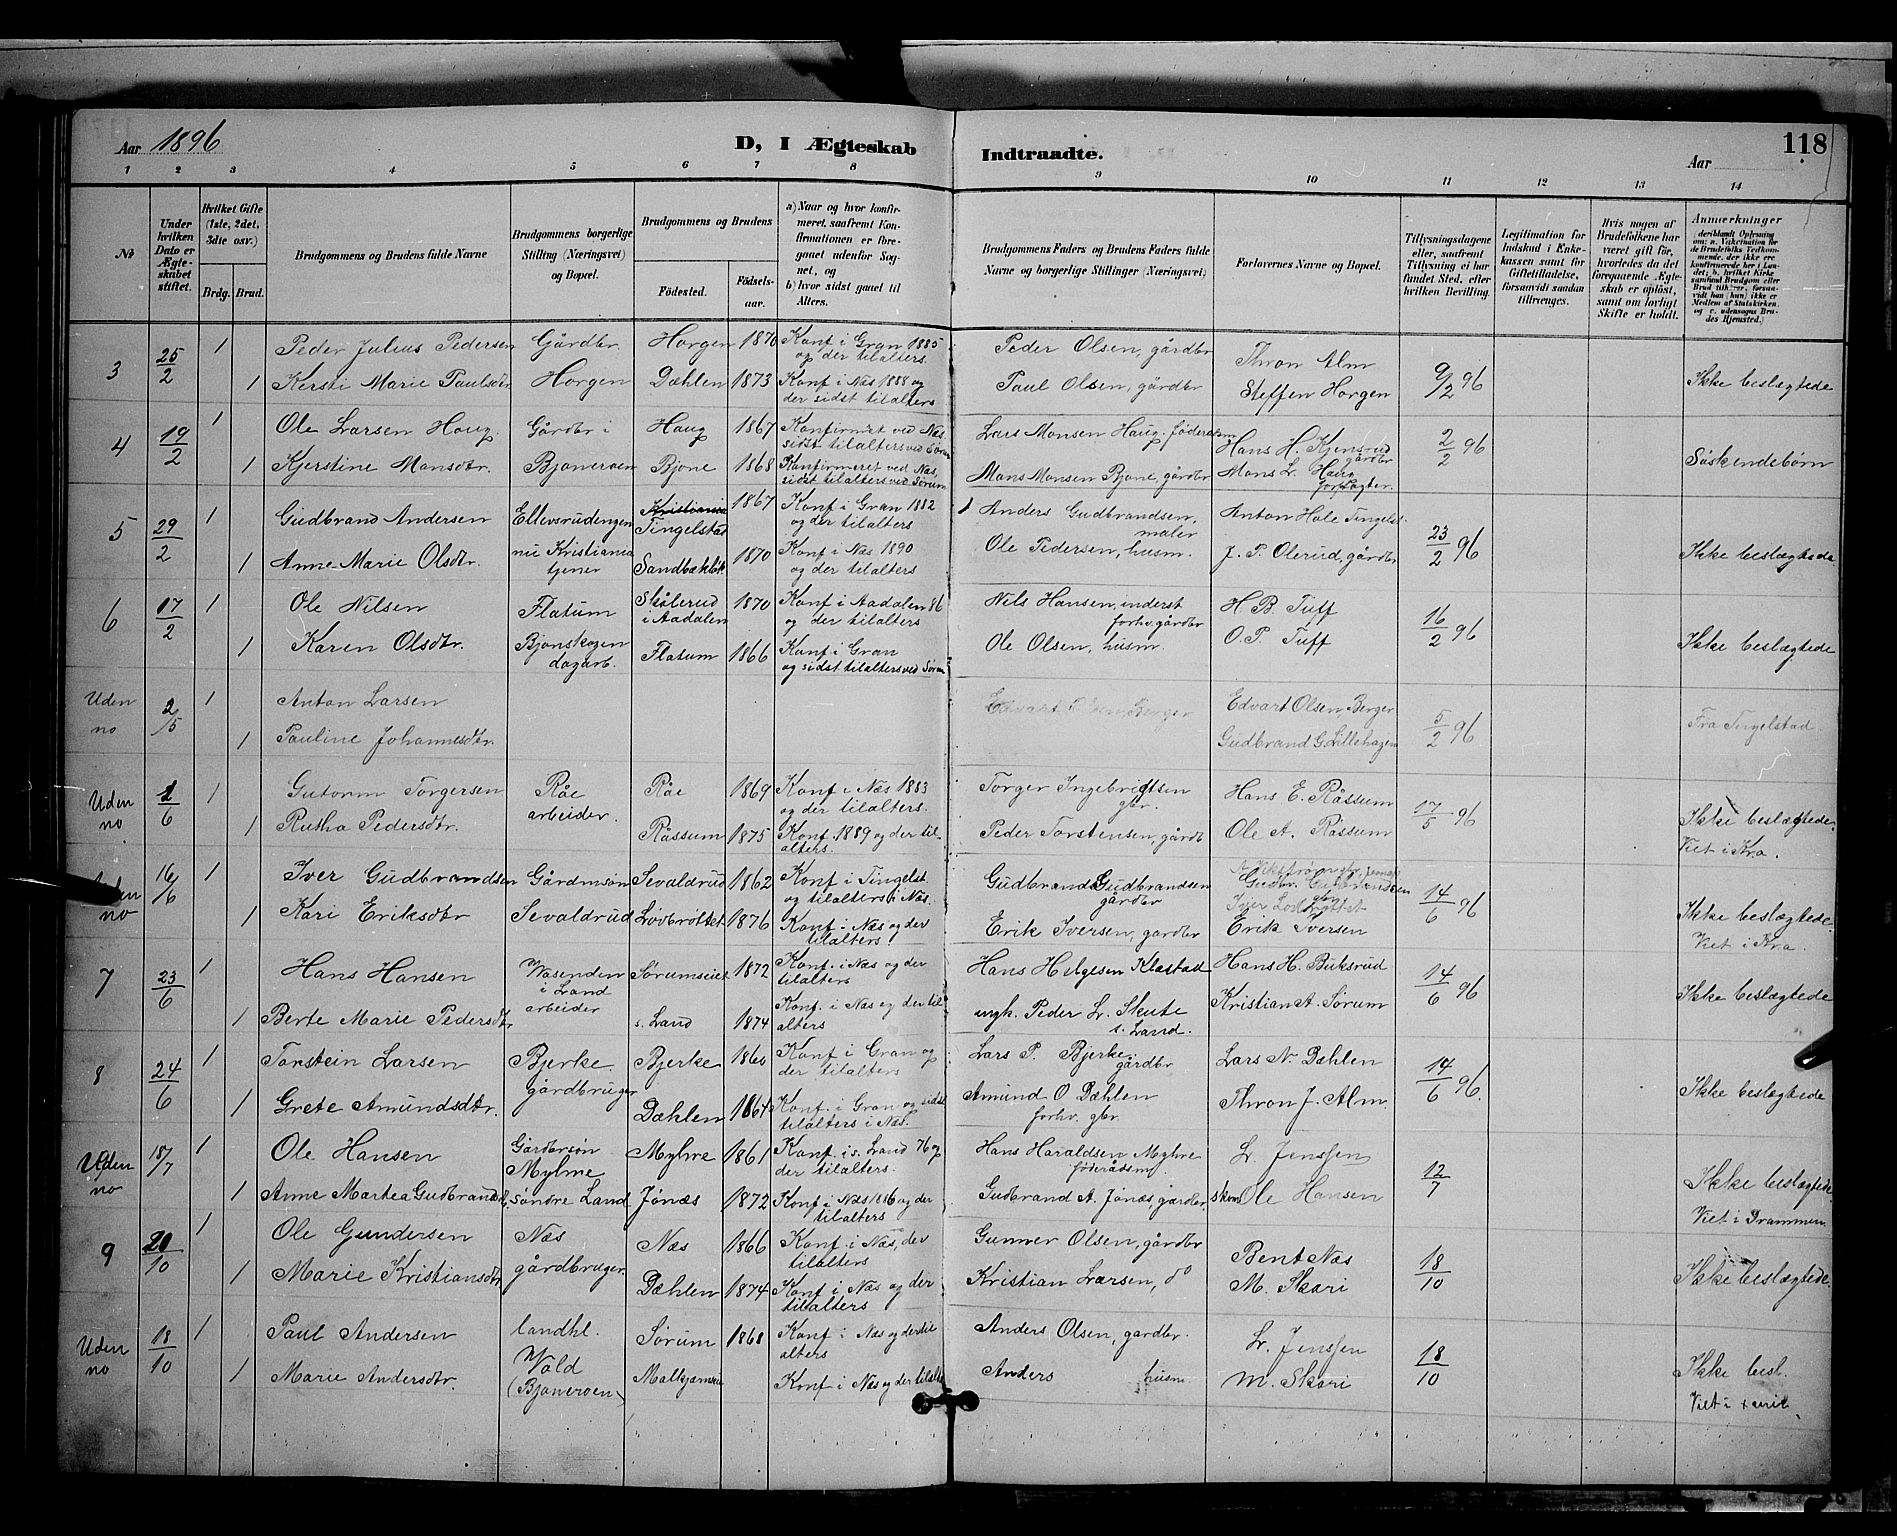 Aar 1896
D, I Ægteskab
Indtraadte.
Aar
118
1 2 3 4 5 6 7 8 9 10 11 12 13 14
№
Under hvilken Dato er Ægteskabet stiftet.
Hvilket Gifte (1ste, 2det, 3die osv.)
Brdg. Brud.
Brudgommens og Brudens fulde Navne
Brudgommens borgerlige Stilling (Næringsvei) og Bopæl.
Brudgommens og Brudens
Fødested.
Fødselsaar.
a) Naar og hvor konfirmeret, saafremt Konfirmationen er foregaaet udenfor Sognet, og
b) hvor sidst gaaet til Alters.
Brudgommens Faders og Brudens Faders fulde Navne og borgerlige Stillinger (Næringsvei)
Forlovernes Navne og Bopæl.
Tillysningsdagene eller, saafremt Tillysning ei har fundet Sted, efter hvilken Bevilling.
Legitimation for Indskud i Enkekassen samt for Giftetilladelse, forsaavidt saadan tiltrænges.
Hvis nogen af Brudefolkene har været gift før, hvorledes da det foregaaende Ægteskab er opløst, samt om lovligt Skifte er holdt.
Anmærkninger (deriblandt Oplysning om: a. Vakcination for de Brudefolks Vedkommende, der ikke ere konfirmerede her i Landet; b. hvilket Kirkesamfund Brudgom eller Brud tilhører, forsaavidt han (hun) ikke er Medlem af Statskirken, og c. udensogns Brudes Hjemsted.)
3 25/2 1 Peder Julius Pedersen Gårdbr. Horgen 1870 Konf i Gran 1885 og der tilalters. Peder Olsen, gårdbr Thron Alm 9/2 96
1 Kersti Marie Paulsdtr Horgen Dæhlen 1873 Konf i Næs 1888 og der sidst tilalters Paul Olsen, gårdbr Steffen Horgen Ikke beslægtede
4 19/2 1 Ole Larsen Haug Gårdbr i Haug 1867 Konfirmeret ved Næs, sidst tilalters ved Sørum Lars Monsen Haug, føderåm Hans H. Kjensrud gårdbr 2/2 96
1 Kjerstine Monsdtr. Bjoneroen Bjone 1868 Konfirmeret ved Næs, sidst tilalters ved Sørum Mons Monsen Bjone, gårdbr Mons L. Haug forpagter. Söskendebörn
5 29/2 1 Gudbrand Andersen Ellevsrudengen Kristiania Tingelstad 1867 Konf i Gran 1882 og der tilalters Anders Gudbrandsen, maler Anton Hole Tingelst. 23/2 96
1 Anne Marie Olsdtr. nu Kristiania tjener Sandbækbk 1870 Konf i Næs 1890 og der tilalters Ole Pedersen, husm. J. P. Olerud, gårdbr Ikke beslægtede
6 17/2 1 Ole Nilsen Flatum Skålerud i Aadalen 1870 Konf i Aadalen 86 og der tilalters Nils Hansen, inderst forhv. gårdbr H. B. Tuff 16/2 96
1 Karen Olsdtr. Bjonskogen dagarb. Flatum 1866 Konf i Gran og sidst tilalters ved Sørum Ole Olsen, husm. O. P. Tuff Ikke beslægtede
Uden no 2/5 1 Anton Larsen Edvart Olsen, Berger Edvart Olsen, Berger 5/2 96
1 Pauline Johannesdtr. Gudbrand G. Lillehagen Fra Tingelstad.
Uden no 1/6 1 Gutorm Torgersen Råe arbeider. Råe 1869 Konf i Næs 1883 og der tilalters. Torger Ingebrigtsen gbr. Hans E. Råssum 17/5 96
1 Rutha Pedersdtr. Råssum 1875 Konf. 1889 og der tilalters. Peder Torstensen, gårdbr Ole A. Råssum Ikke beslægtede. Viet i Kra.
no 16/6 1 Iver Gudbrandsen Gårdmsøn Sevaldrud 1862 Konf i Tingelst. og tilalters i Næs. Gudbrand Gudbrandsen gårdbr Gudbr. Gudbrandsen 14/6 96
1 Kari Eriksdtr Sevaldrud Løvbrøttet 1876 Konf. i Næs og der tilalters Erik Iversen, gårdbr Erik Iversen Ikke beslægtede. Viet i Kra.
7 23/6 1 Hans Hansen Waseden i Land arbeider Sørumseiet 1872 Konf. i Næs og der tilalters Hans Helgesen Klæstad Hans H. Buksrud 14/6 96
1 Berte Marie Pedersdtr s. Land 1874 Konf. i Næs og der tilalters ungk. Peder L. Skute s. Land. Kristian A. Sørum Ikke beslægtede
8 24/6 1 Torstein Larsen Bjerke gårdbruger Bjerke 1860 Konf i Gran og der tilalters Lars P. Bjerke. gårdbr Lars N. Dæhlen 14/6 96.
1 Grete Amundsdtr. Dæhlen 1864 Konf. i Gran og sidst tilalters i Næs. Amund O Dæhlen forhv. gbr. Thron J. Alm Ikke beslægtede
Uden no 18/7 1 Ole Hansen Gårdbrsøn Myhre 1861 Konf i s. Land 76 og der tilalters. Hans Haraldsen Myhre føderådsm. L. Jenssen 12/7
1 Anne Martea Gudbrandsd. Myhre søndre Land Jónæs 1872 Konf. i Næs 1886 og der tilalters Gudbrand A. Jónæs, gardbr. Ole Hansen Ikke beslægtede Viet i Drammen
9 20/10 1 Ole Gundersen Næs Næs 1866 Konf. i Næs, der tilalters Gunner Olsen, gårdbr Bent Næs 18/10
1 Marie Kristiansdtr gårdbruger. Dæhlen 1874 Konf i Næs og der tilalters Kristian Larsen, do M. Skari Ikke beslægtede.
Uden no 18/10 1 Paul Andersen landhl. Sørum 1868 Konf i Næs og der tilalters Anders Olsen, gardbr. L. Jenssen 18/10
1 Marie Andersdtr. Vold (Bjoneroen) Konf i Næs og der tilalte Anders husm M. Skari Ikke besl. Viet i